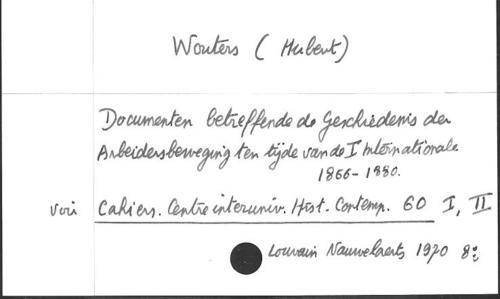 Wouters ( Hubert)
Documenten betreffende de Geschiedenis der
Arbeidersbeweging ten tijde van de I Internationale
1866-1880.
voir Cahiers. Centre interuniv. Hist. Contemp. 60 I, II
Louvain Nauwelaerts 1970 8º